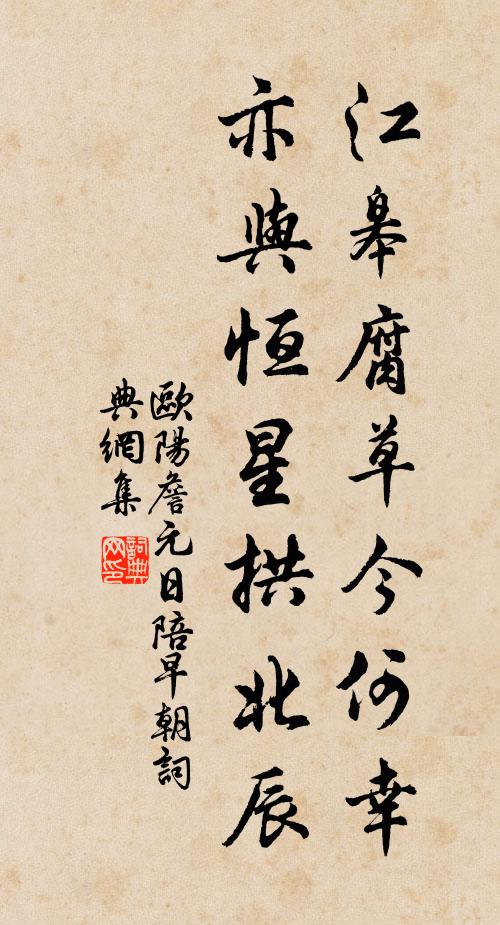 江皋腐草今何幸
亦與恒星拱北辰
歐陽詹元日陪早朝詞
典網集
詞典
网印